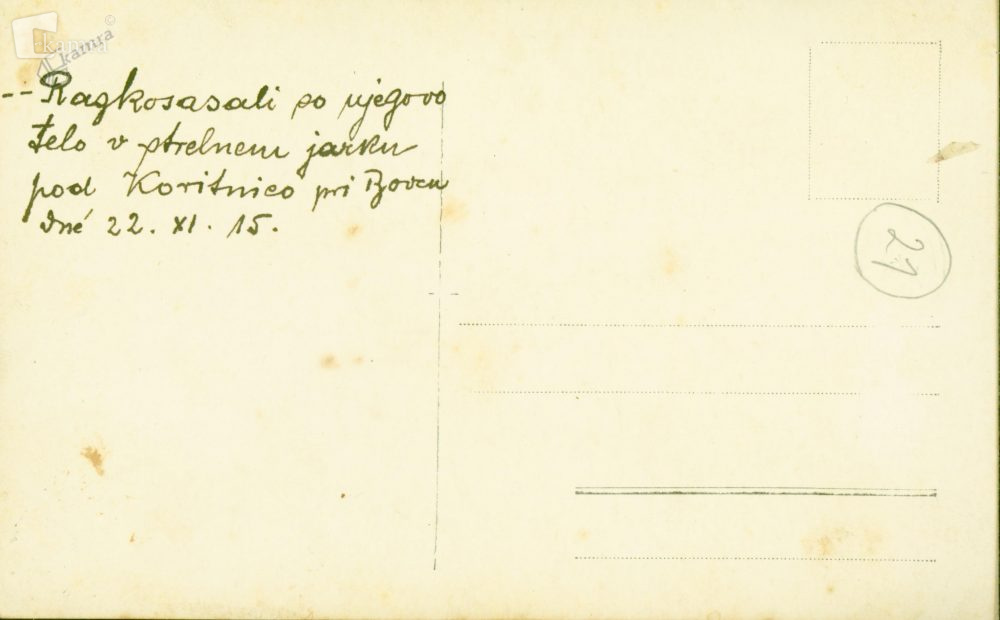 kamra
kamra ©
-- Razkosasali so njegovo
telo v strelnem jarku
pod Koritnico pri Bovcu
dné 22. XI. 15.
21